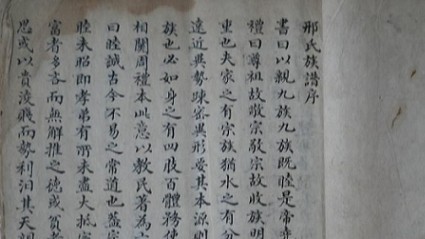 邢氏族譜序
書曰以親九族九族既睦是帝堯
禮曰尊祖故敬宗敬宗故收族明
重也夫家之有宗族猶水之有分
遠近異勢疎密異形要其本源則
族也必如身之有四肢百體務使
相關周禮本此意以教民著為六
曰睦誠古今不易之常道也蓋宗
睦未昭即孝弟有所未盡大抵宗
富者多吝而無解推之德或貧者
思或以貴淩賤而勢利汨其天親